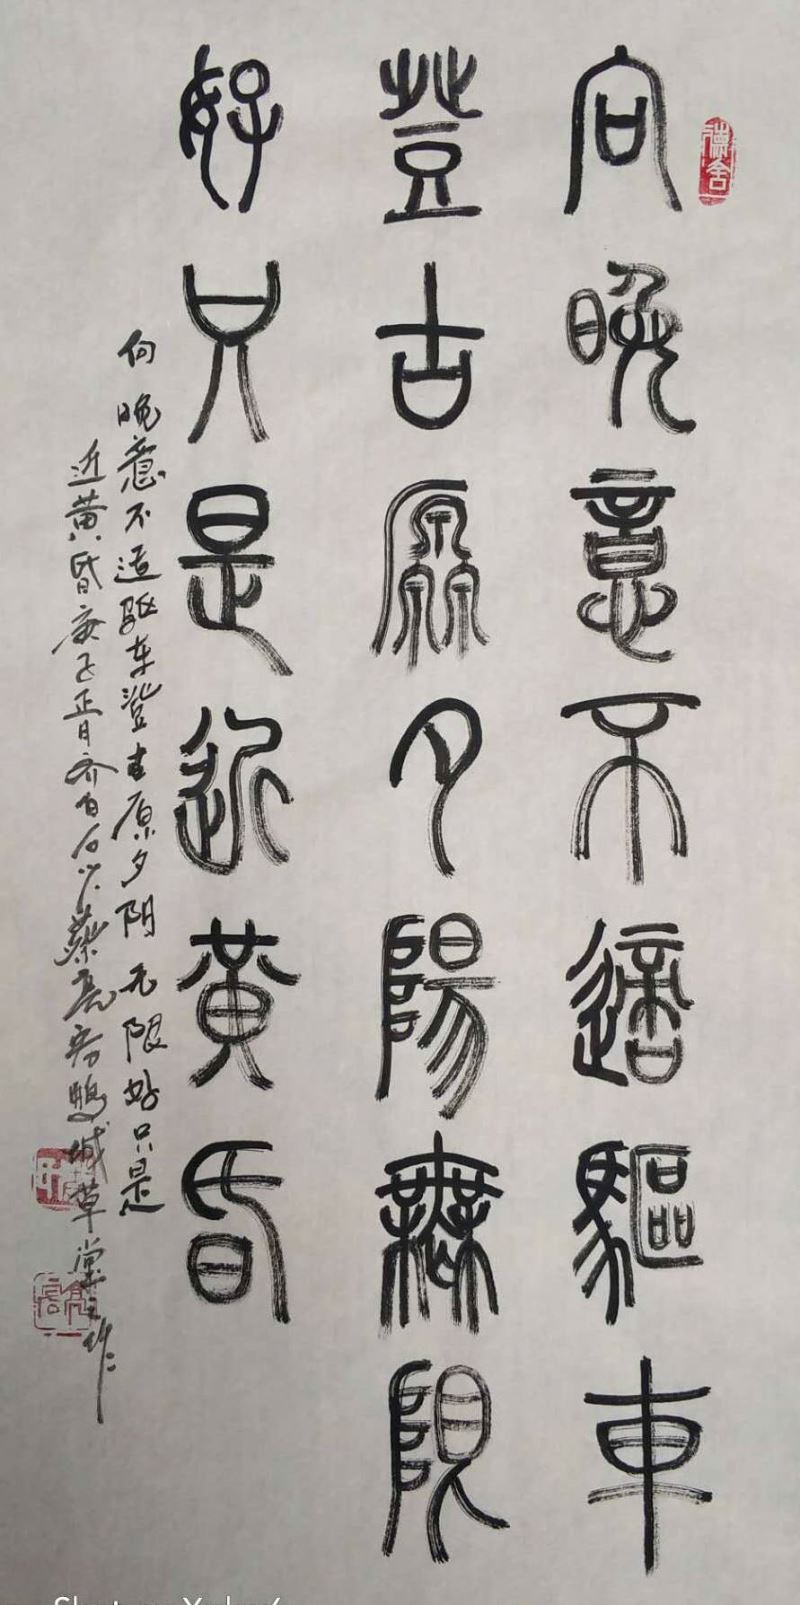 向晚意不適驅車
登古原夕陽無限
好只是近黄昏
向晚意不适驱车登古原夕阳无限好只是
近黄昏庚子正月齐白石 蔡亮 鹏城草堂之作